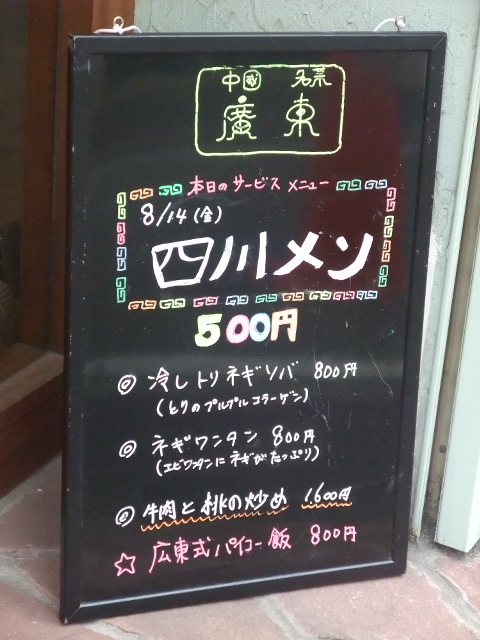 中國 名菜
廣東
本日のサービス メニュー
8/14(金)
四川メン
500円
◎ 冷しトリネギソバ 800円
(とりのプルプルコラーゲン)
◎ ネギワンタン 800円
(エビワンタンにネギがたっぷり)
◎ 牛肉と桃の炒め 1,600円
☆ 広東式パイコー飯 800円